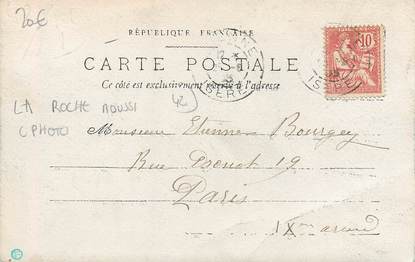 20€
RÉPUBLIQUE FRANÇAISE
10
CARTE POSTALE
Ce côté est exclusivement réservé à l'adresse
ISÈRE
42
LA ROCHE
(PHOTO)
Monsieur Etienne Bourgey
Rue 19
Paris
IXme arrond